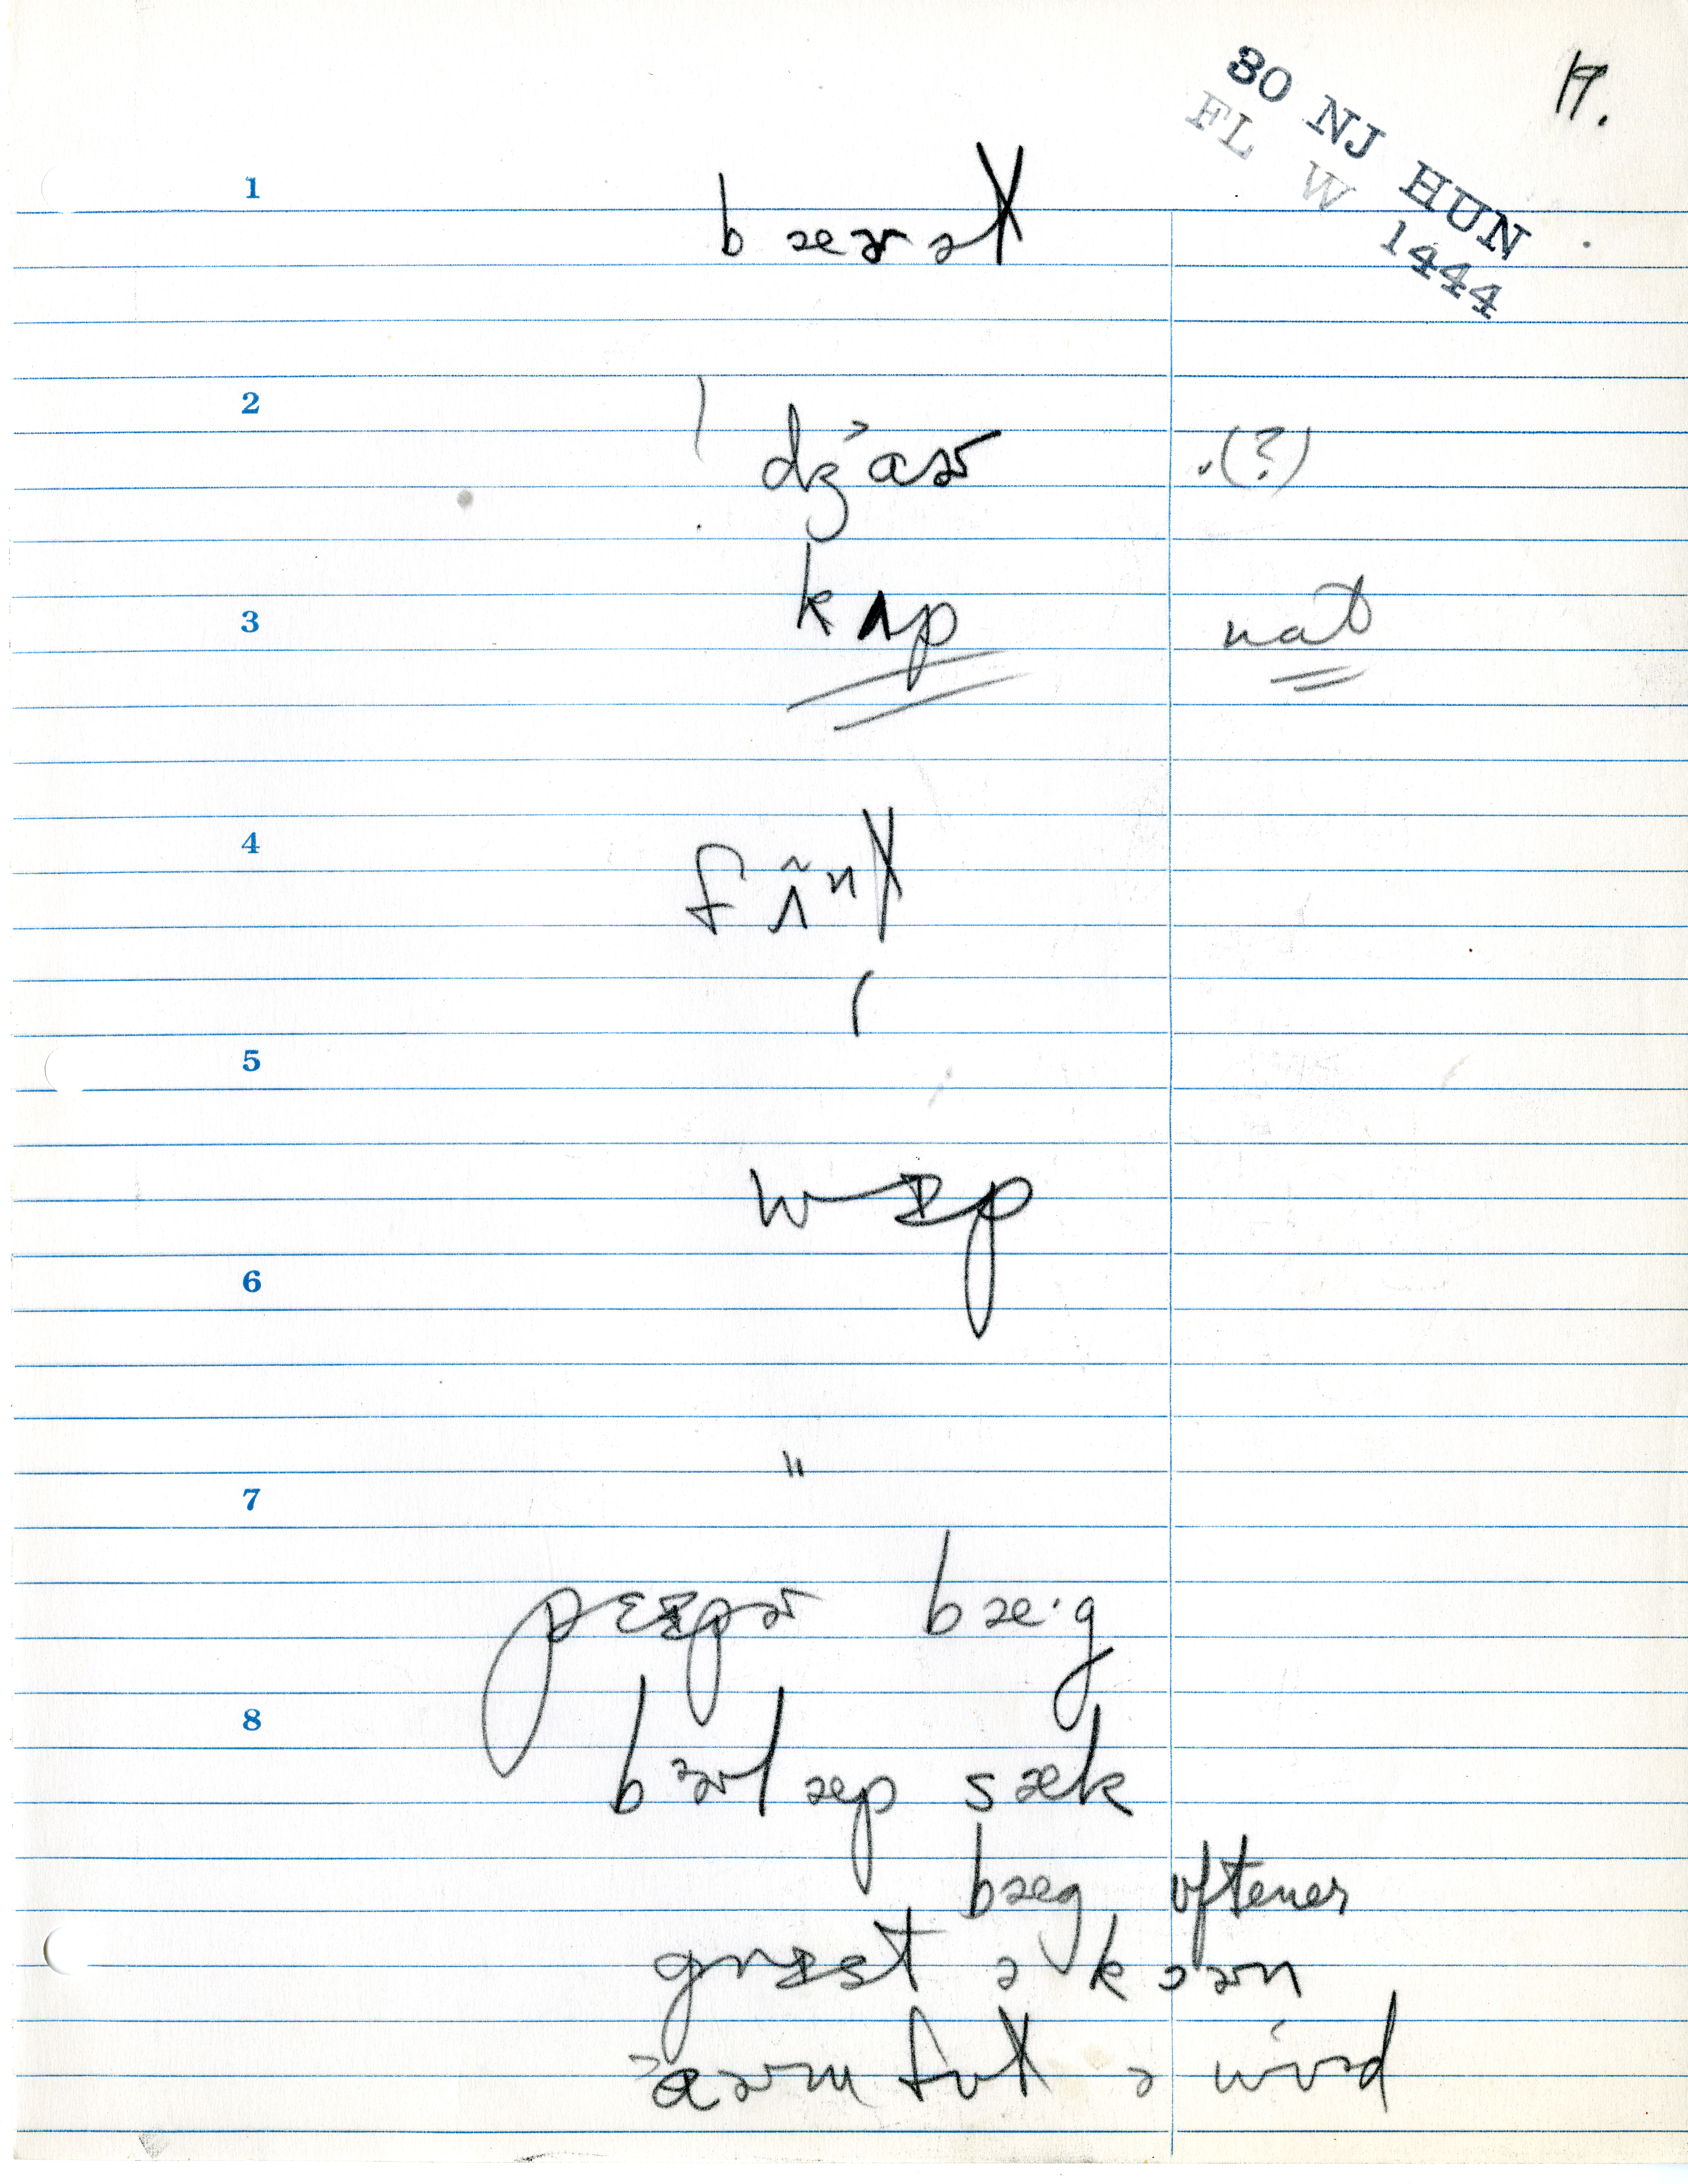 17.
30 NJ HUN
FL W 1444
1
bæɚəɫ
2
dʒ˃aɚ .(?)
3
kʌp not
4
fʌ̃nɫ
5
wɪp
6
7
"
pɛɪpɚ bæ·g
8
bɚlæp sæk
bæg oftener
grɪst ə kɔɚn
˃aɚm fʊɫ ə wʊd